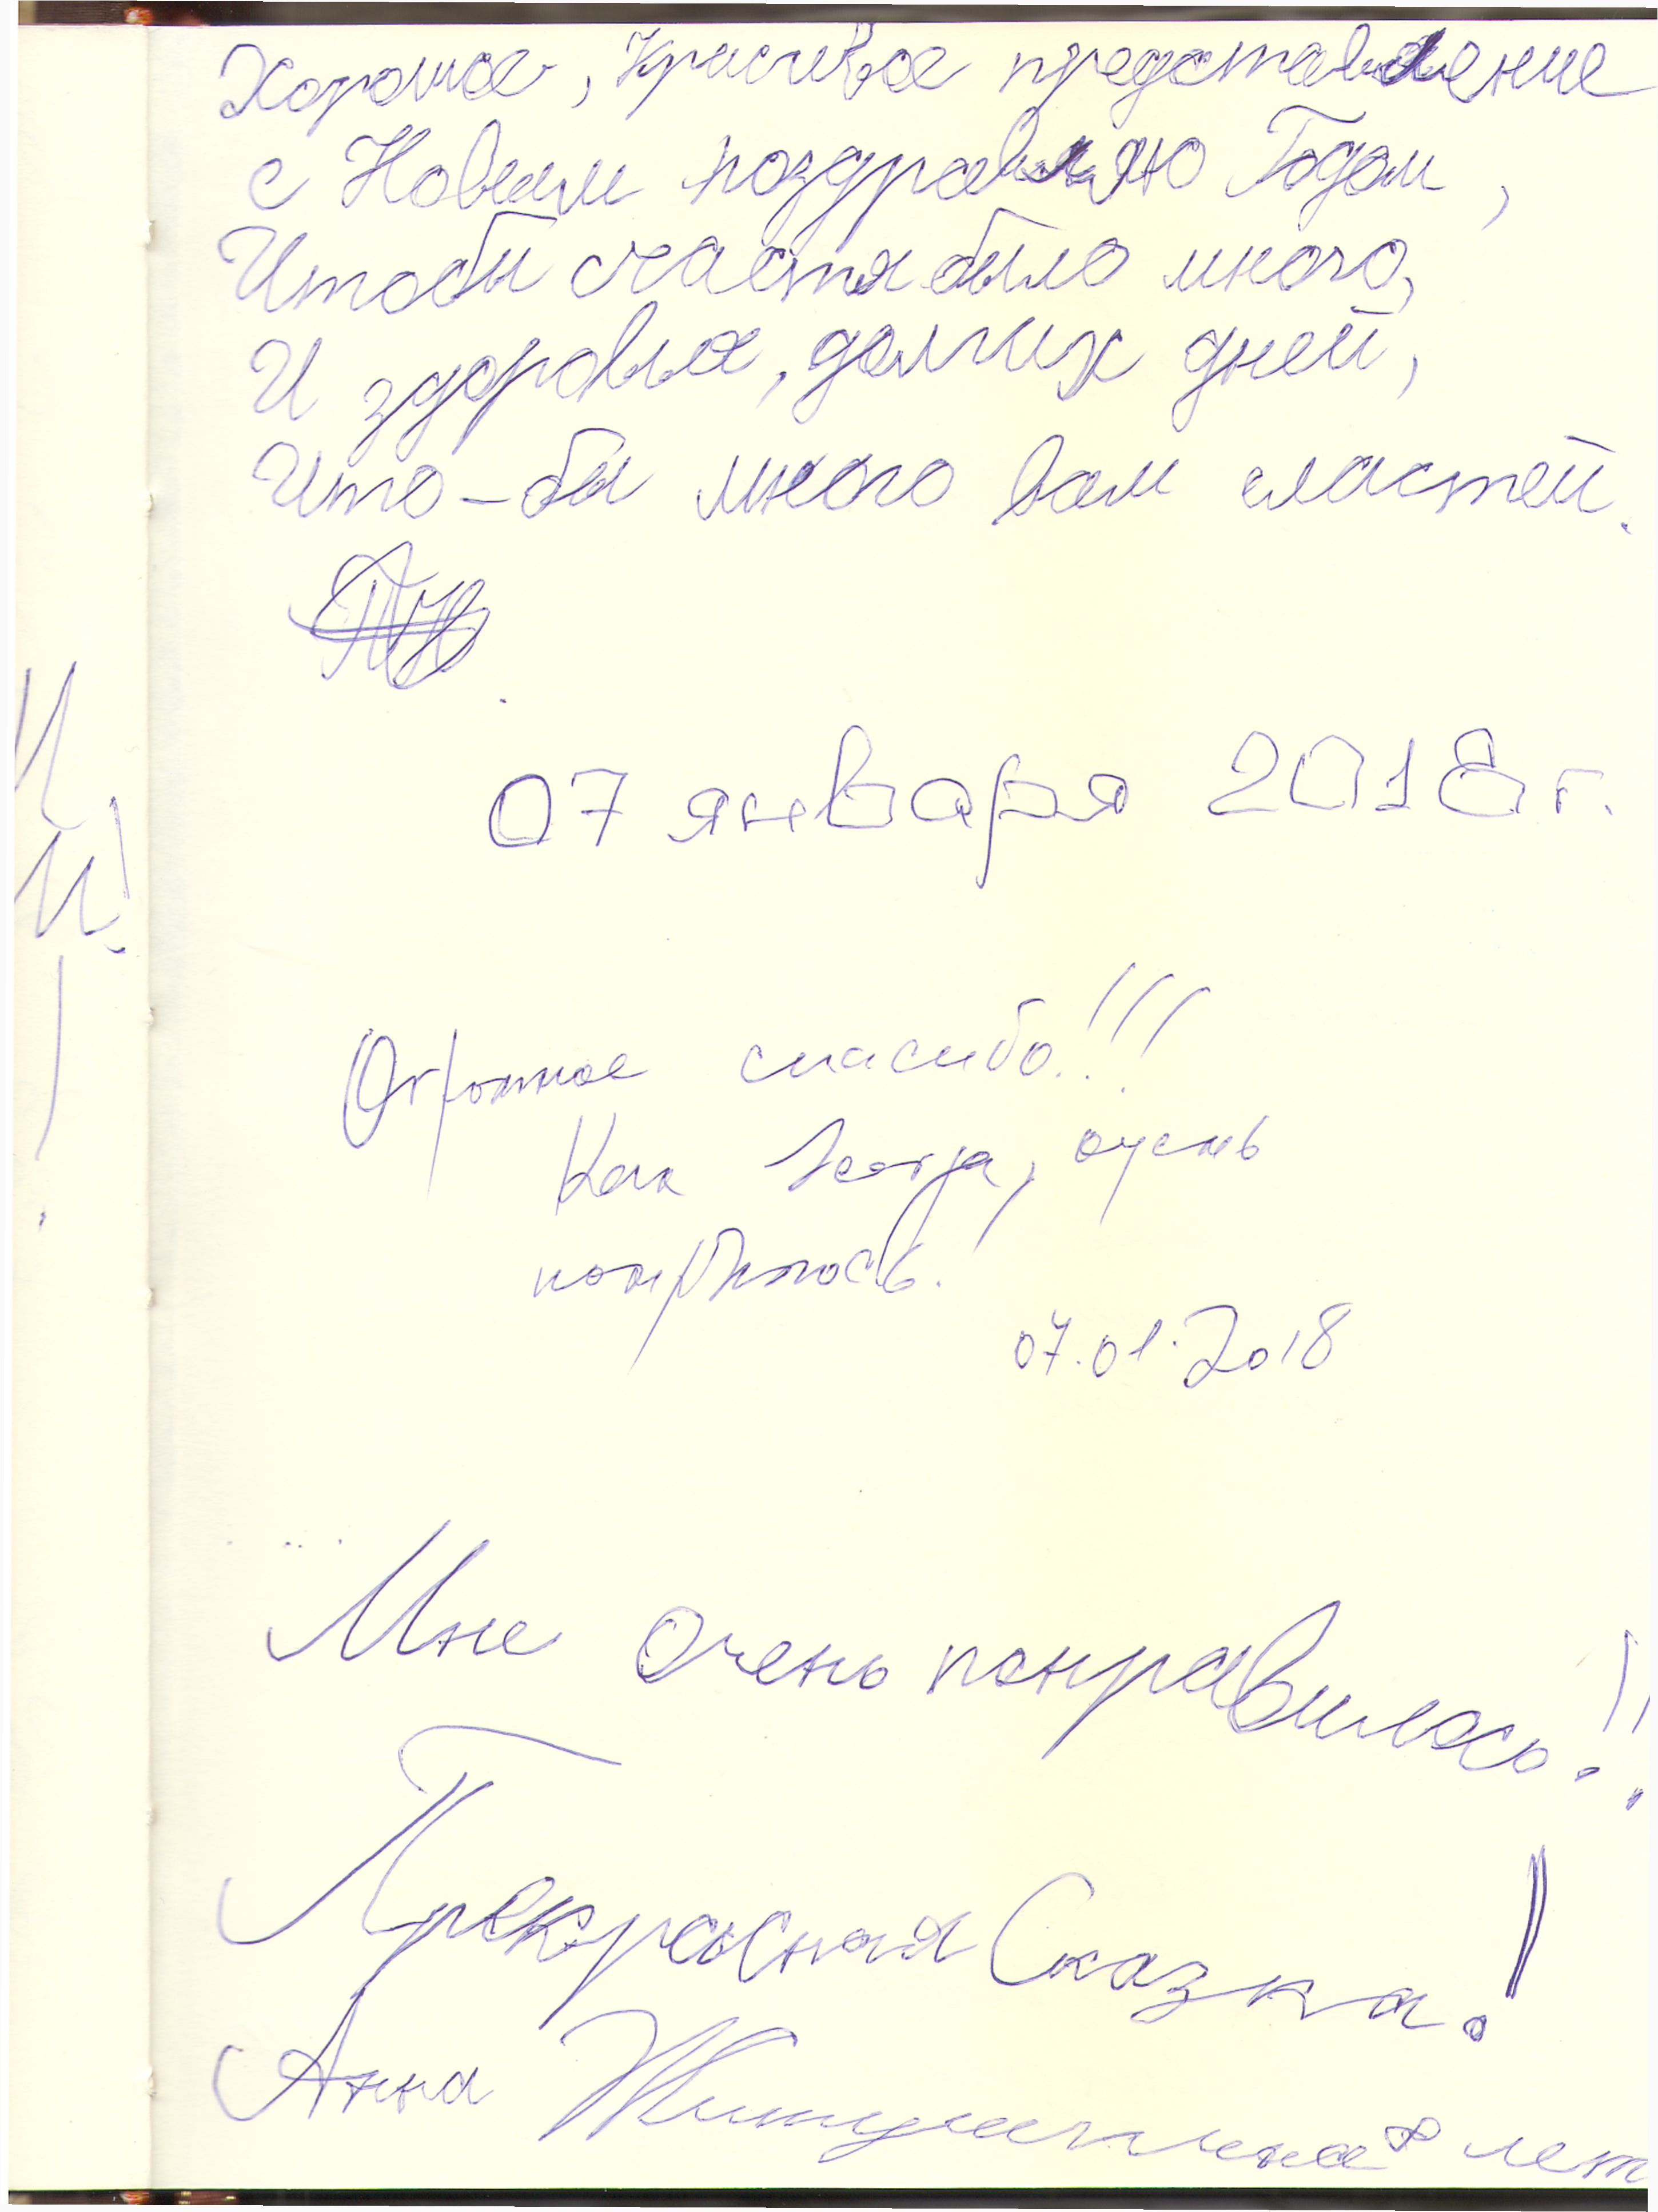 Хорошое, Красивое представление
с Новым поздравляю Годом,
Чтобы счастя было много,
И здоровья, долгих дней,
Что-бы много вам сластей.
07 января 2018 г.
Огромное спасибо!!!
Как всегда, очень
понравилось.
07.01.2018
Мне очень понравилось!!
Прекрасная Сказка!
Анна 8 лет